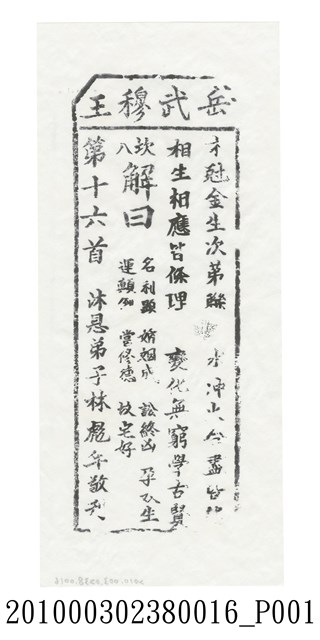 岳武穆王
木尅金生次第聯 水冲火
相生相應皆條理 變化無窮學古賢
坎八 解曰
名利顯 婚姻成 訟終凶 孕不生
運顛倒 當修德 墳宅好
第十六首 沐恩弟子林彪年敬刊
201000302380016_P001